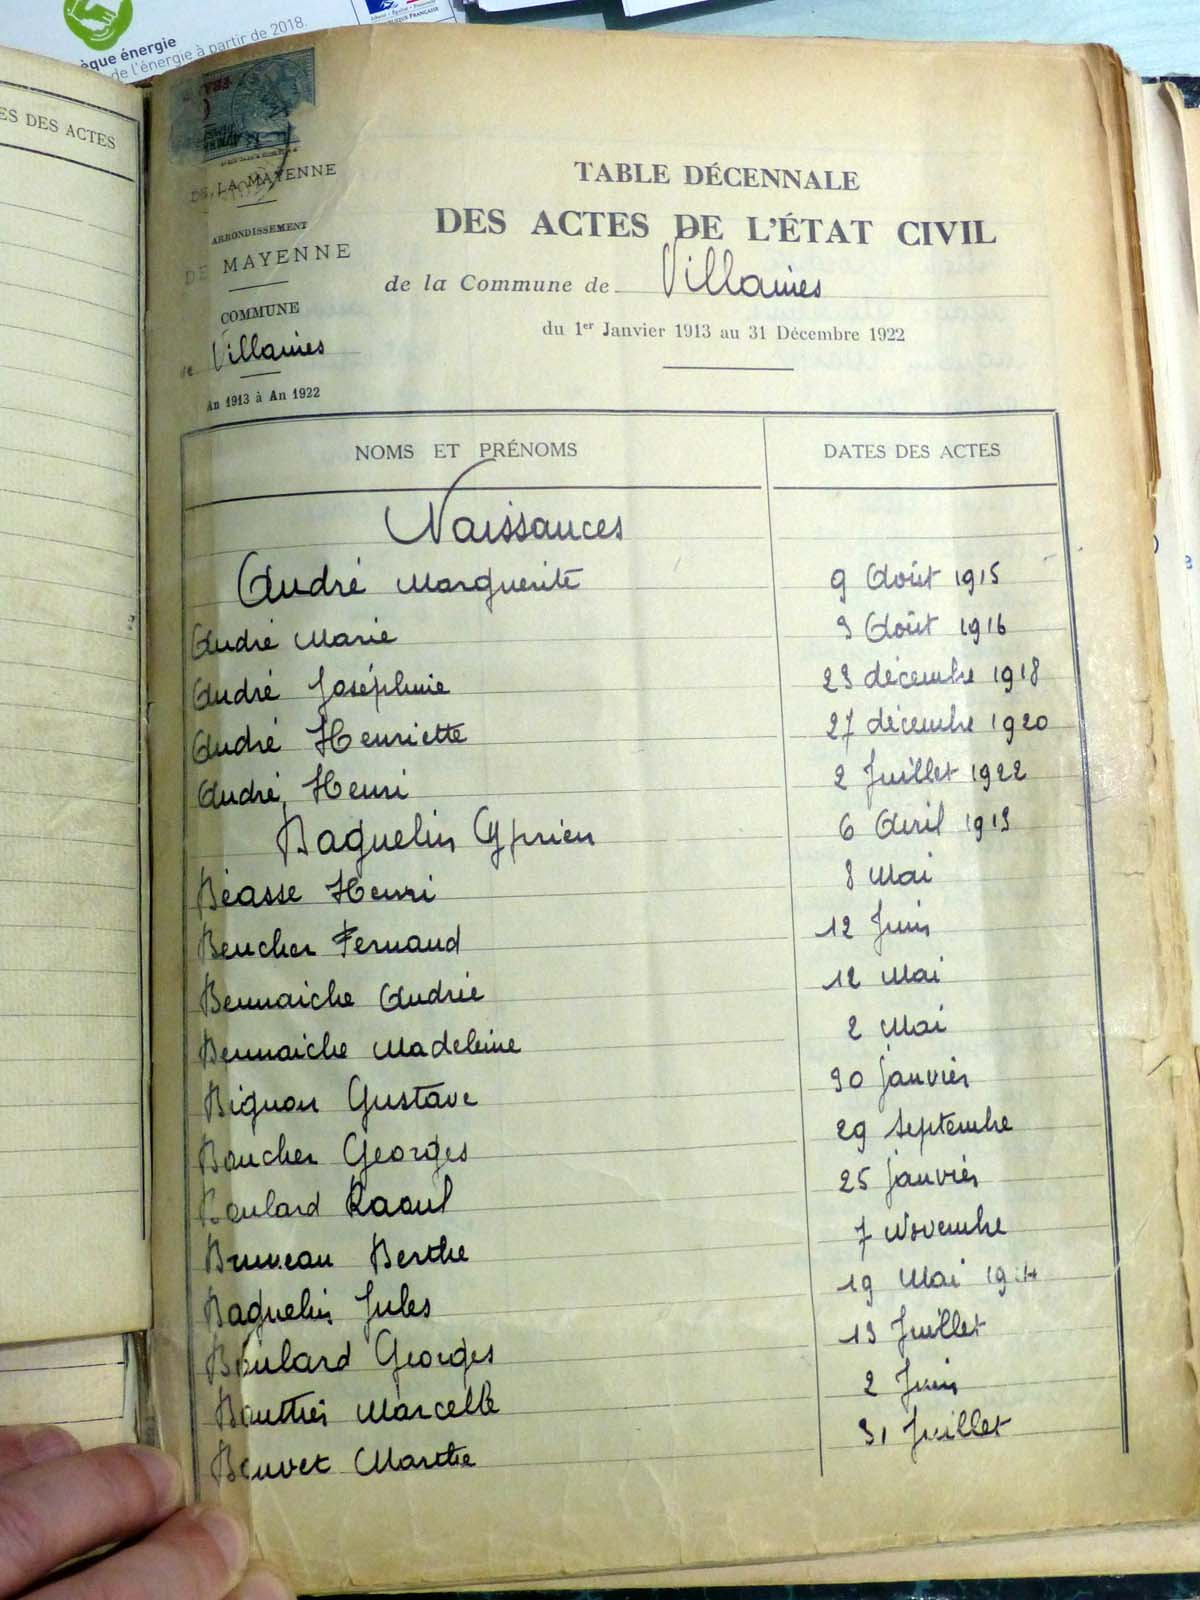 èque énergie
de l'énergie à partir de 2018.
RÉPUBLIQUE FRANÇAISE
ES DES ACTES
DE LA MAYENNE
ARRONDISSEMENT
DE MAYENNE
COMMUNE
de Villaines
An 1913 à An 1922
TABLE DÉCENNALE
DES ACTES DE L'ÉTAT CIVIL
de la Commune de Villaines
du 1er Janvier 1913 au 31 Décembre 1922
NOMS ET PRÉNOMS DATES DES ACTES
Naissances
André Marguerite 9 Août 1915
André Marie 3 Août 1916
André Joséphine 23 décembre 1918
André Henriette 27 décembre 1920
André Henri 2 Juillet 1922
Baguelin Cyprien 6 Avril 1913
Béasse Henri 8 Mai
Beucher Fernand 12 Juin
Bennaiche Andrée 12 Mai
Bennaiche Madeleine 2 Mai
Bignon Gustave 30 janvier
Boucher Georges 29 septembre
Boulard Raoul 25 janvier
Bruneau Berthe 7 Novembre
Baguelin Jules 19 Mai 1914
Boulard Georges 13 Juillet
Bouttier Marcelle 2 Juin
Bouvet Marthe 31 Juillet